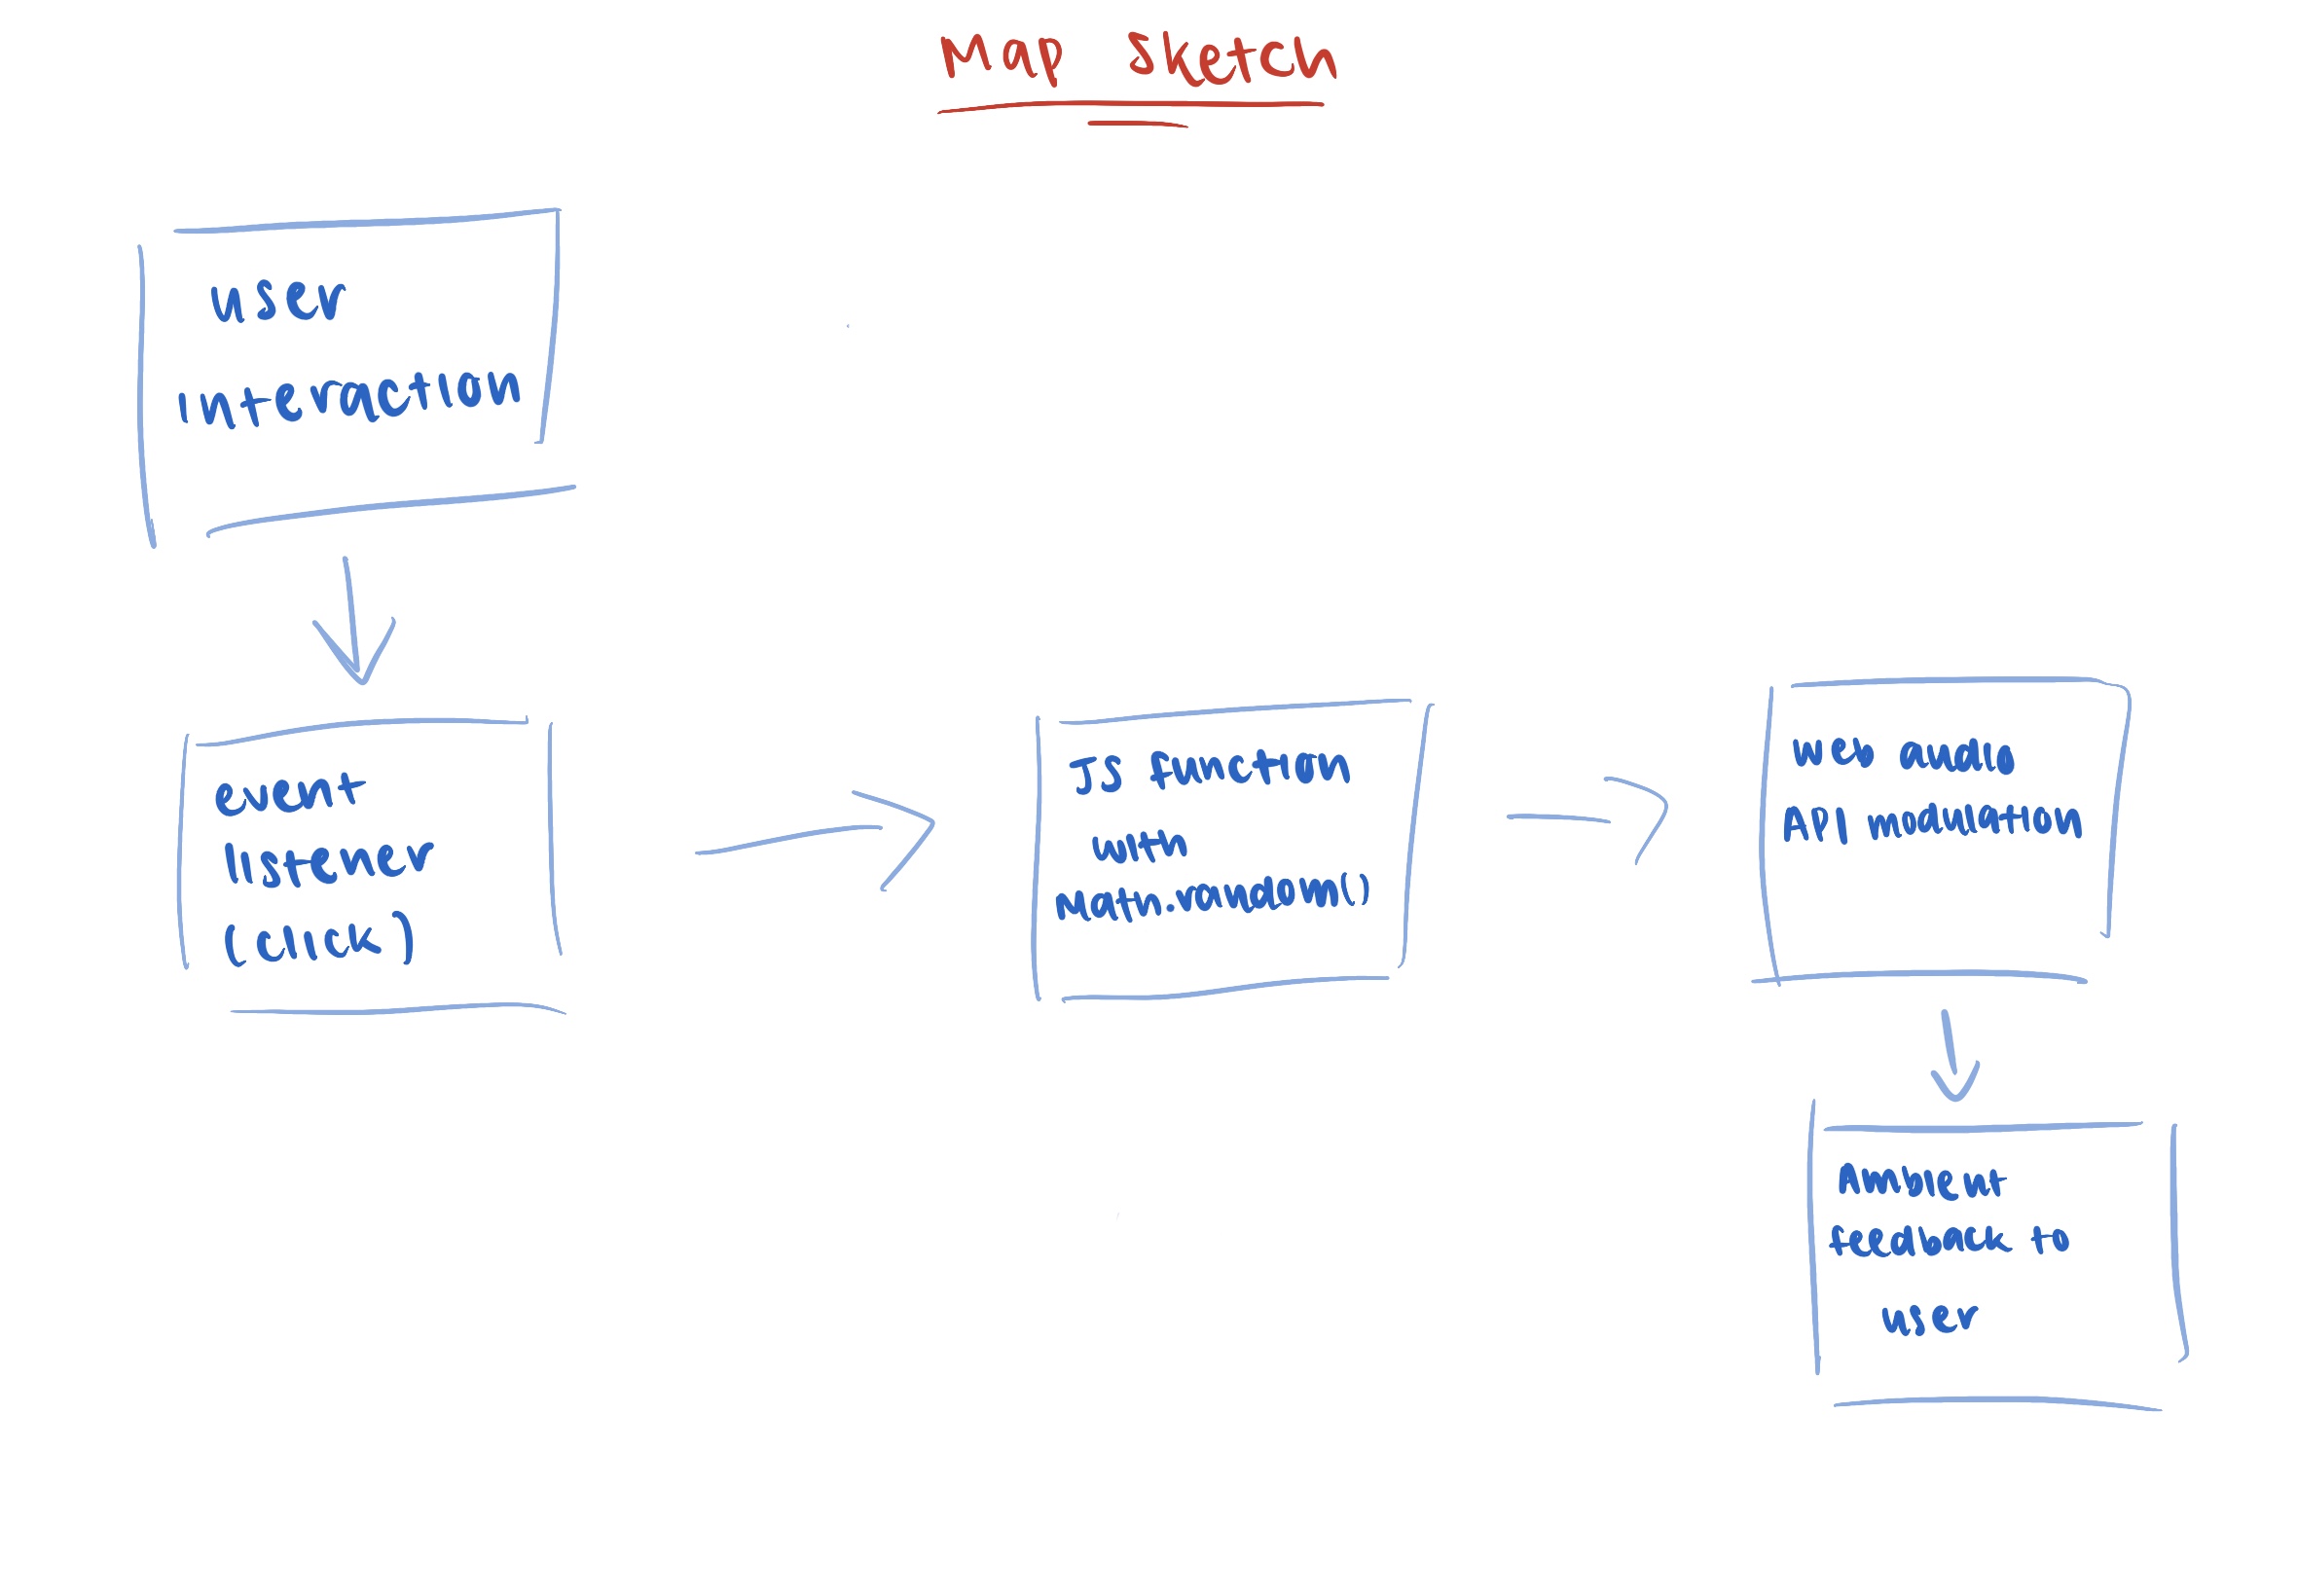 Map Sketch
user
interaction
event
listener
(click)
JS function
with
Math.random()
Web audio
API modulation
Ambient
feedback to
user